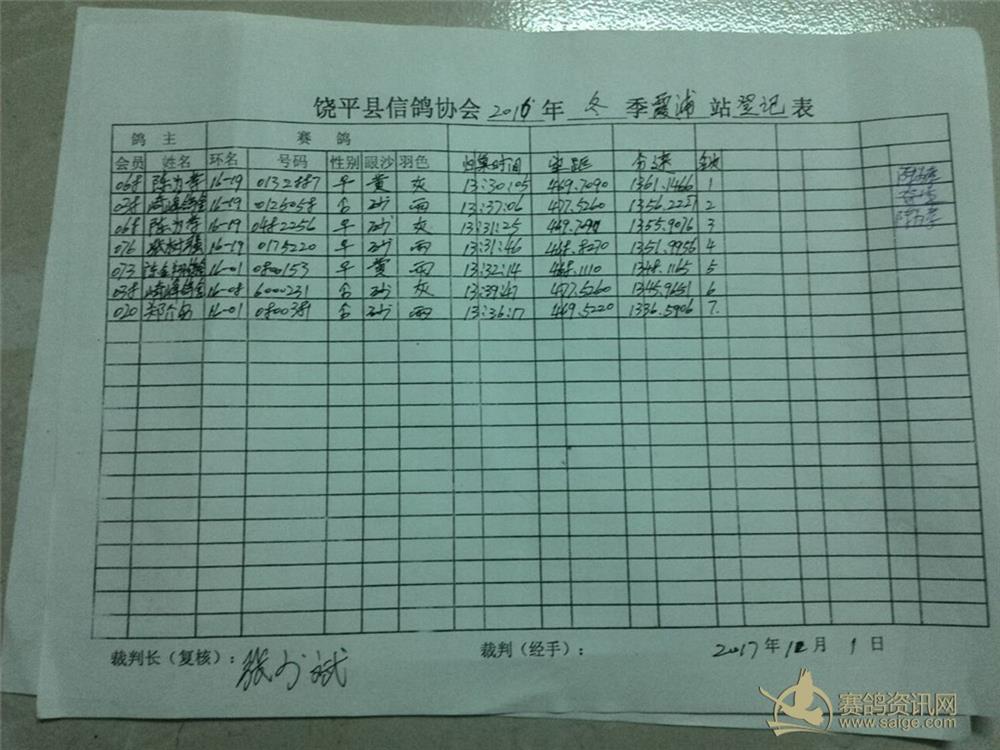 饶平县信鸽协会 2016 年 冬 季 霞浦 站 登记 表
鸽 主 赛 鸽
会员 姓名 环名 号码 性别 眼沙 羽色 归巢时间 空距 分速 名次
068 陈为孝 16-19 0132887 黄 灰 13:30:05 469.7090 1361.1466 1
038 16-19 0126058 砂 雨 13:37:06 477.5260 1356.2221 2
068 陈为孝 16-19 0482256 砂 灰 13:31:25 1355.9076 3
076 16-19 0175220 砂 雨 13:31:46 468.8270 1351.9956 4
073 16-01 0800153 黄 雨 13:32:14 468.1110 1348.1165 5
038 16-08 6000231 砂 灰 13:39:47 477.5260 1345.9651 6
020 16-01 0800381 砂 雨 13:36:17 469.5220 1336.5906 7.
裁判长（复核）： 裁判（经手）： 2017 年 月 1 日
赛鸽资讯网
www.saige.com